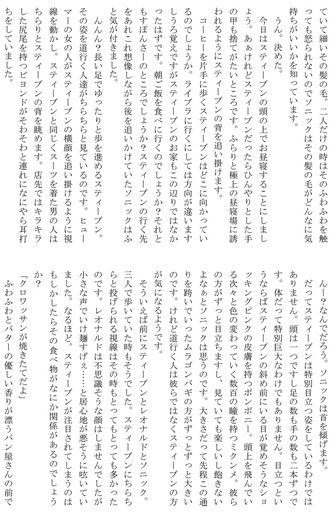 ていて細いその髪の毛。二人だけの時はそのふわふわを触
っても怒られないのでソニックはその髪の毛がどんなに気
持ちがいいかを知っています。
うん。決めた。
今日はスティーブンの頭の上でお昼寝することにしまし
ょう。あぁけれどスティーブンだったらひんやりとした手
の甲も捨てがたいところです。ふらりと極上の昼寝場に誘
われるようにスティーブンの背を追い掛けます。
コーヒーを片手に歩くスティーブンはどこに向かってい
るのでしょうか。ライブラに行くにしては方向が違います
しうろ覚えですがスティーブンのお家もこの辺りではなか
ったはずです。朝ご飯を食べに行くのでしょうか？それと
もすぽんさーのところでしょうか？スティーブンの行く先
をあれこれ想像しながら後を追いかけていたソニックはふ
と気が付きました。
んんっ？長い足でゆったりと歩を進めるスティーブン。
その姿を道行く人達がちらちらと見ているのです。ヒュー
マーの女の人がスティーブンの横顔を追い掛けるように視
線を動かし。スティーブンと同じくスーツを着た男の人は
ちらりとスティーブンの背を眺めます。店先ではキラキラ
した尻尾を持つビヨンドがそわそわと連れになにやら耳打
ちをしていました。
んー？なんでだろう。ソニックは首を傾げます。
だってスティーブンは特別目立つ姿をしているわけでは
ありません。頭は一つですし足の数も手の数も二本ずつで
す。体だって特別巨大なわけでもありません。目立つとい
うならばスティーブンの斜め前にいる目が覚めそうなショ
ッキングピンクの皮膚を持つボンボニー。頭上を飛んでい
る次々と色の変わっていく数百の瞳を持つミクンメ。彼ら
の方がずっと目立ちますし、見ていても楽しいし飽きない
よなぁとソニックは思うのです。大きさだって先程この通
りを跨いでいったムラゴンバギの方がずっとずっと大きい
のです。けれど道行く人は彼らではなくスティーブンの方
が気になるようです。
そういえば前にスティーブンとレオナルドとソニック、
三人で歩いていた時もそうでした。スティーブンにちらち
らと投げられる視線はその時もとってもとっても多かった
のです。レオナルドは不思議そうな顔はしませんでしたが
小さな声でいけ麺すげぇ……と居心地が悪そうに呟いてい
ました。なるほど。スティーブンが注目されてしまうのは
もしかしたらその食べ物がなにか関係があるのでしょう
か？
「クロワッサンが焼きたてだよ」
ふわふわとバターの優しい香りが漂うパン屋さんの前で